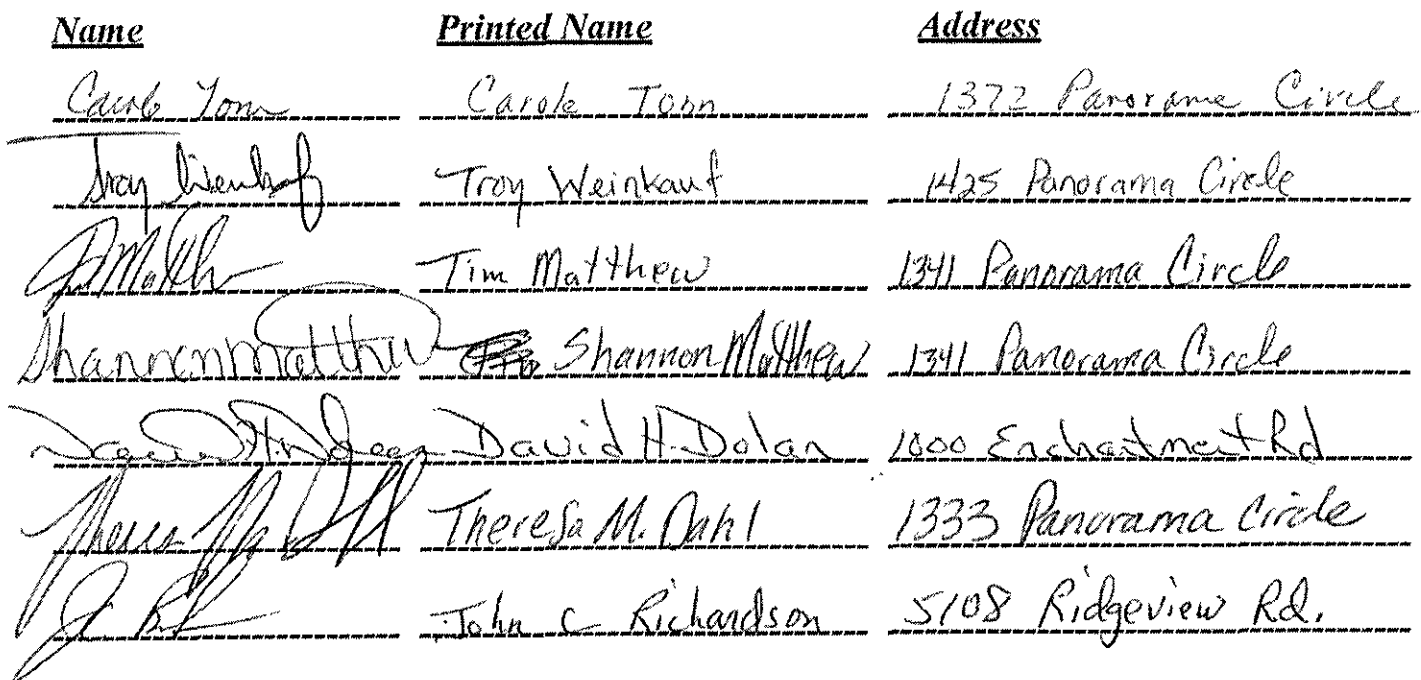 Name Printed Name Address
Carole Tonn Carole Tonn 1372 Panorama Circle
Troy Weinkauf Troy Weinkauf 1425 Panorama Circle
Tim Matthew 1341 Panorama Circle
Shannon Matthew Shannon Matthew 1341 Panorama Circle
David H. Dolan David H. Dolan 1000 Enchantment Rd
Theresa M. Dahl Theresa M. Dahl 1333 Panorama Circle
John C Richardson 5108 Ridgeview Rd.